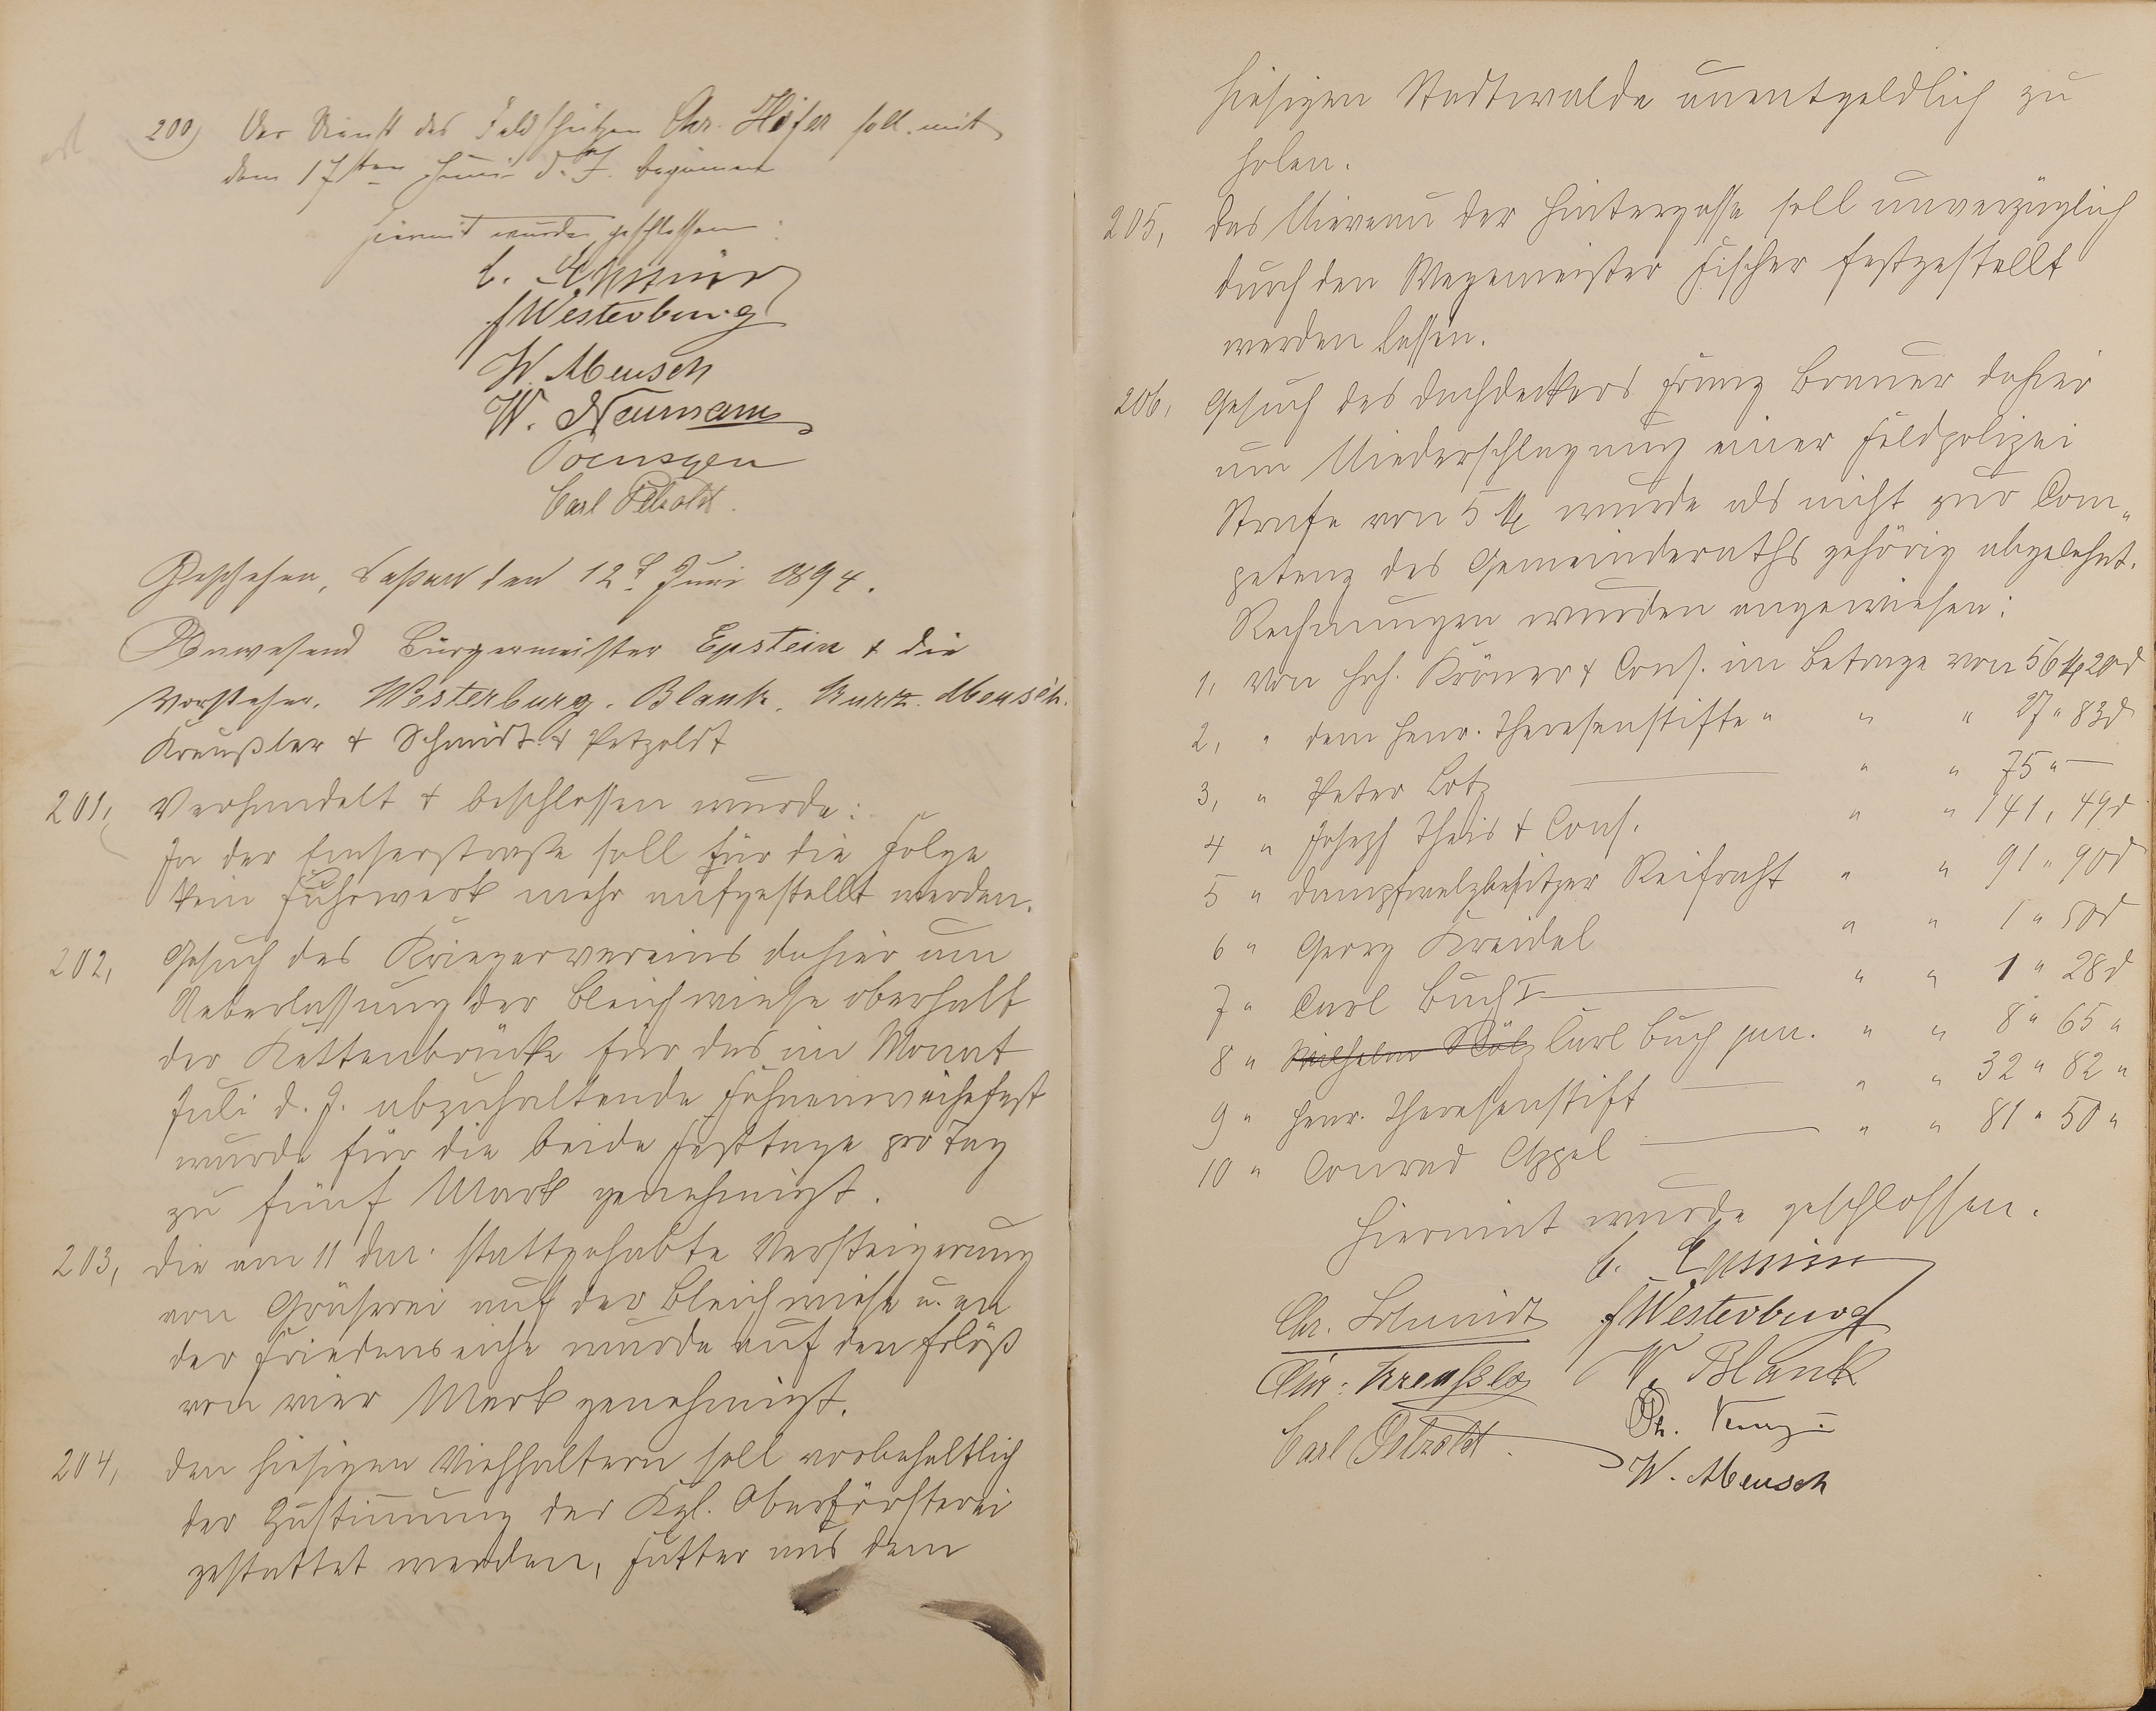 200) Der Dienst des Feldschützen Chr. Höfer soll mit
dem 17ten Juni d. J. beginnen
Hiermit wurde geschlossen:
C. Epstein
F Westerburg
W. Meusch
W. Neumann
Poensgen
Carl Petzoldt.
Geschehen, Nassau den 12t. Juni 1894.
Anwesend Bürgermeister Epstein & die
Vorsteher. Westerburg. Blank. Kurtz. Meusch.
Kreußler & Schmidt & Petzoldt
201, Verhandelt & beschlossen wurde:
In der Emserstraße soll für die Folge
kein Fuhrwerk mehr aufgestellt werden.
202, Gesuch des Kriegervereins dahier um
Ueberlassung der Bleichwiese oberhalb
der Kettenbrücke für das im Monat
Juli d. J. abzuhaltende Fahnenweihefest
wurde für die beide Festtage pro Tag
zu fünf Mark genehmigt.
203, Die am 11 dM. stattgehabte Versteigerung
von Gräserei auf der Bleichwiese u. an
der Friedenseiche wurde auf den Erlöß
von vier Mark genehmigt.
204, Den hiesigen Viehhaltern soll vorbehaltlich
der Zustimmung der Kgl. Oberförsterei
gestattet werden, Futter aus dem
hiesigen Stadtwalde unentgeldlich zu
holen.
205, Das Niveau der Hintergasse soll unverzüglich
durch den Wegemeister Fischer festgestellt
werden lassen.
206, Gesuch des Dachdeckers Franz Brauer dahier
um Niederschlagung einer Feldpolizei
Strafe von 5 M wurde als nicht zur Com„
petenz des Gemeinderaths gehörig abgelehnt.
Rechnungen wurden angewiesen:
1, Von Hch. Krämer & Cons. im Betrage von 56 M 20 d
2, " dem Henr. Theresenstifte " " " 27 " 83 d
3, " Peter Lotz " " 75 " —
4 " Joseph Theis & Cons. " " 141, 49 d
5 " Dampfwalzbesitzer Reifracht " " 91 " 90 d
6 " Georg Kreidel " " 1 " 50 d
7 " Carl Buch I " " 1 " 28 d
8 " Wilhelm Carl Buch jun. " " 8 " 65 "
9 " Henr. Theresenstift " " 32 " 82 "
10 " Conrad Appel " " 81 " 50 "
Hiermit wurde geschlossen.
C. Epstein
Chr. Schmidt F Westerburg
Chr. Kreußler W. Blank
Carl Petzoldt. Ph. Kurtz
W. Meusch